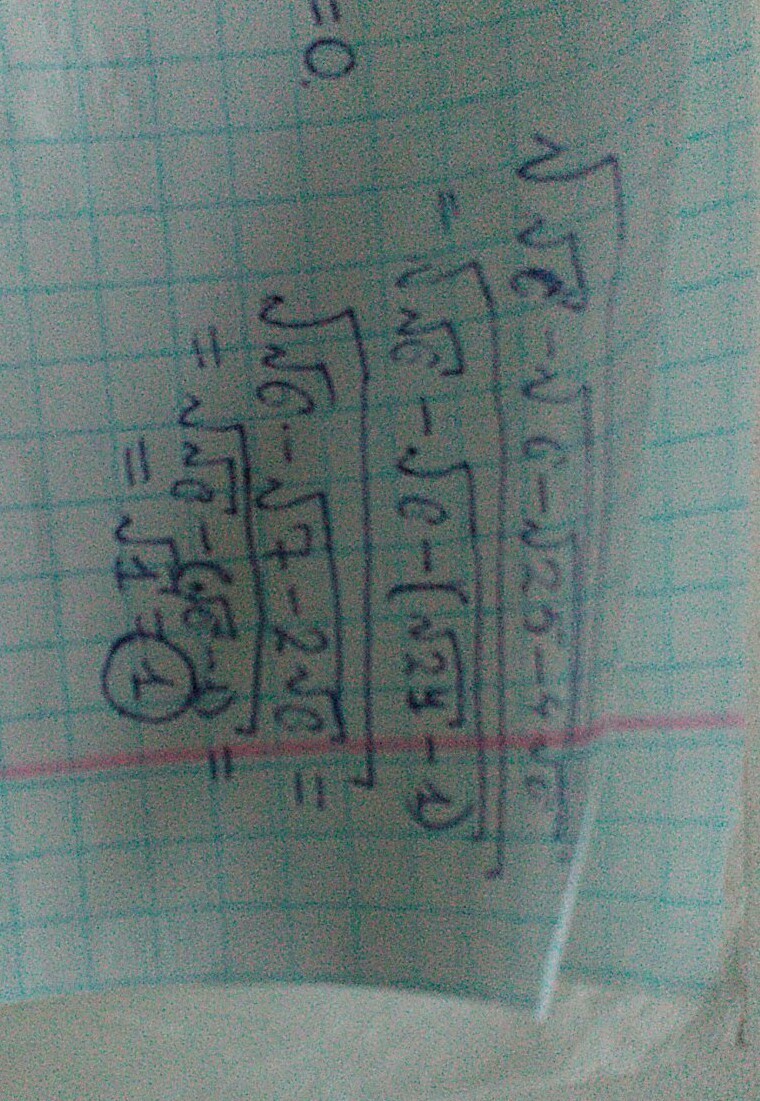 √(√6 - √(6 - √(25 - 4√6)))
= √(√6 - √(6 - (√24 - 1)))
= 0.
√(√6 - √(7 - 2√6)) =
= √(√6 - (√6 - 1)) =
= √1 = 1